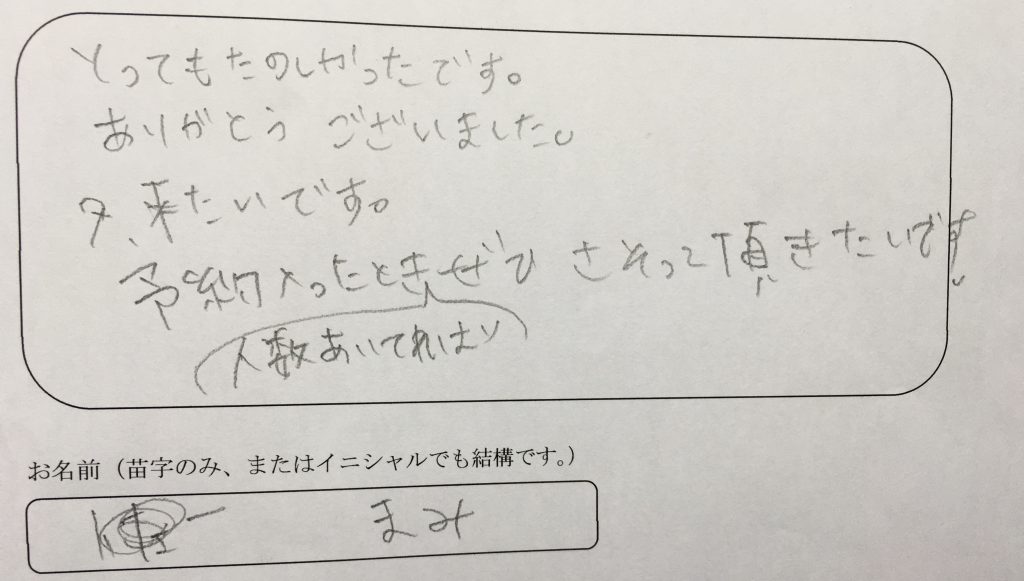 とってもたのしかったです。
ありがとう ございました。
タ、来たいです。
予約入ったときぜひ さそって頂きたいです。
人数あいてれば
お名前（苗字のみ、またはイニシャルでも結構です。）
まみ